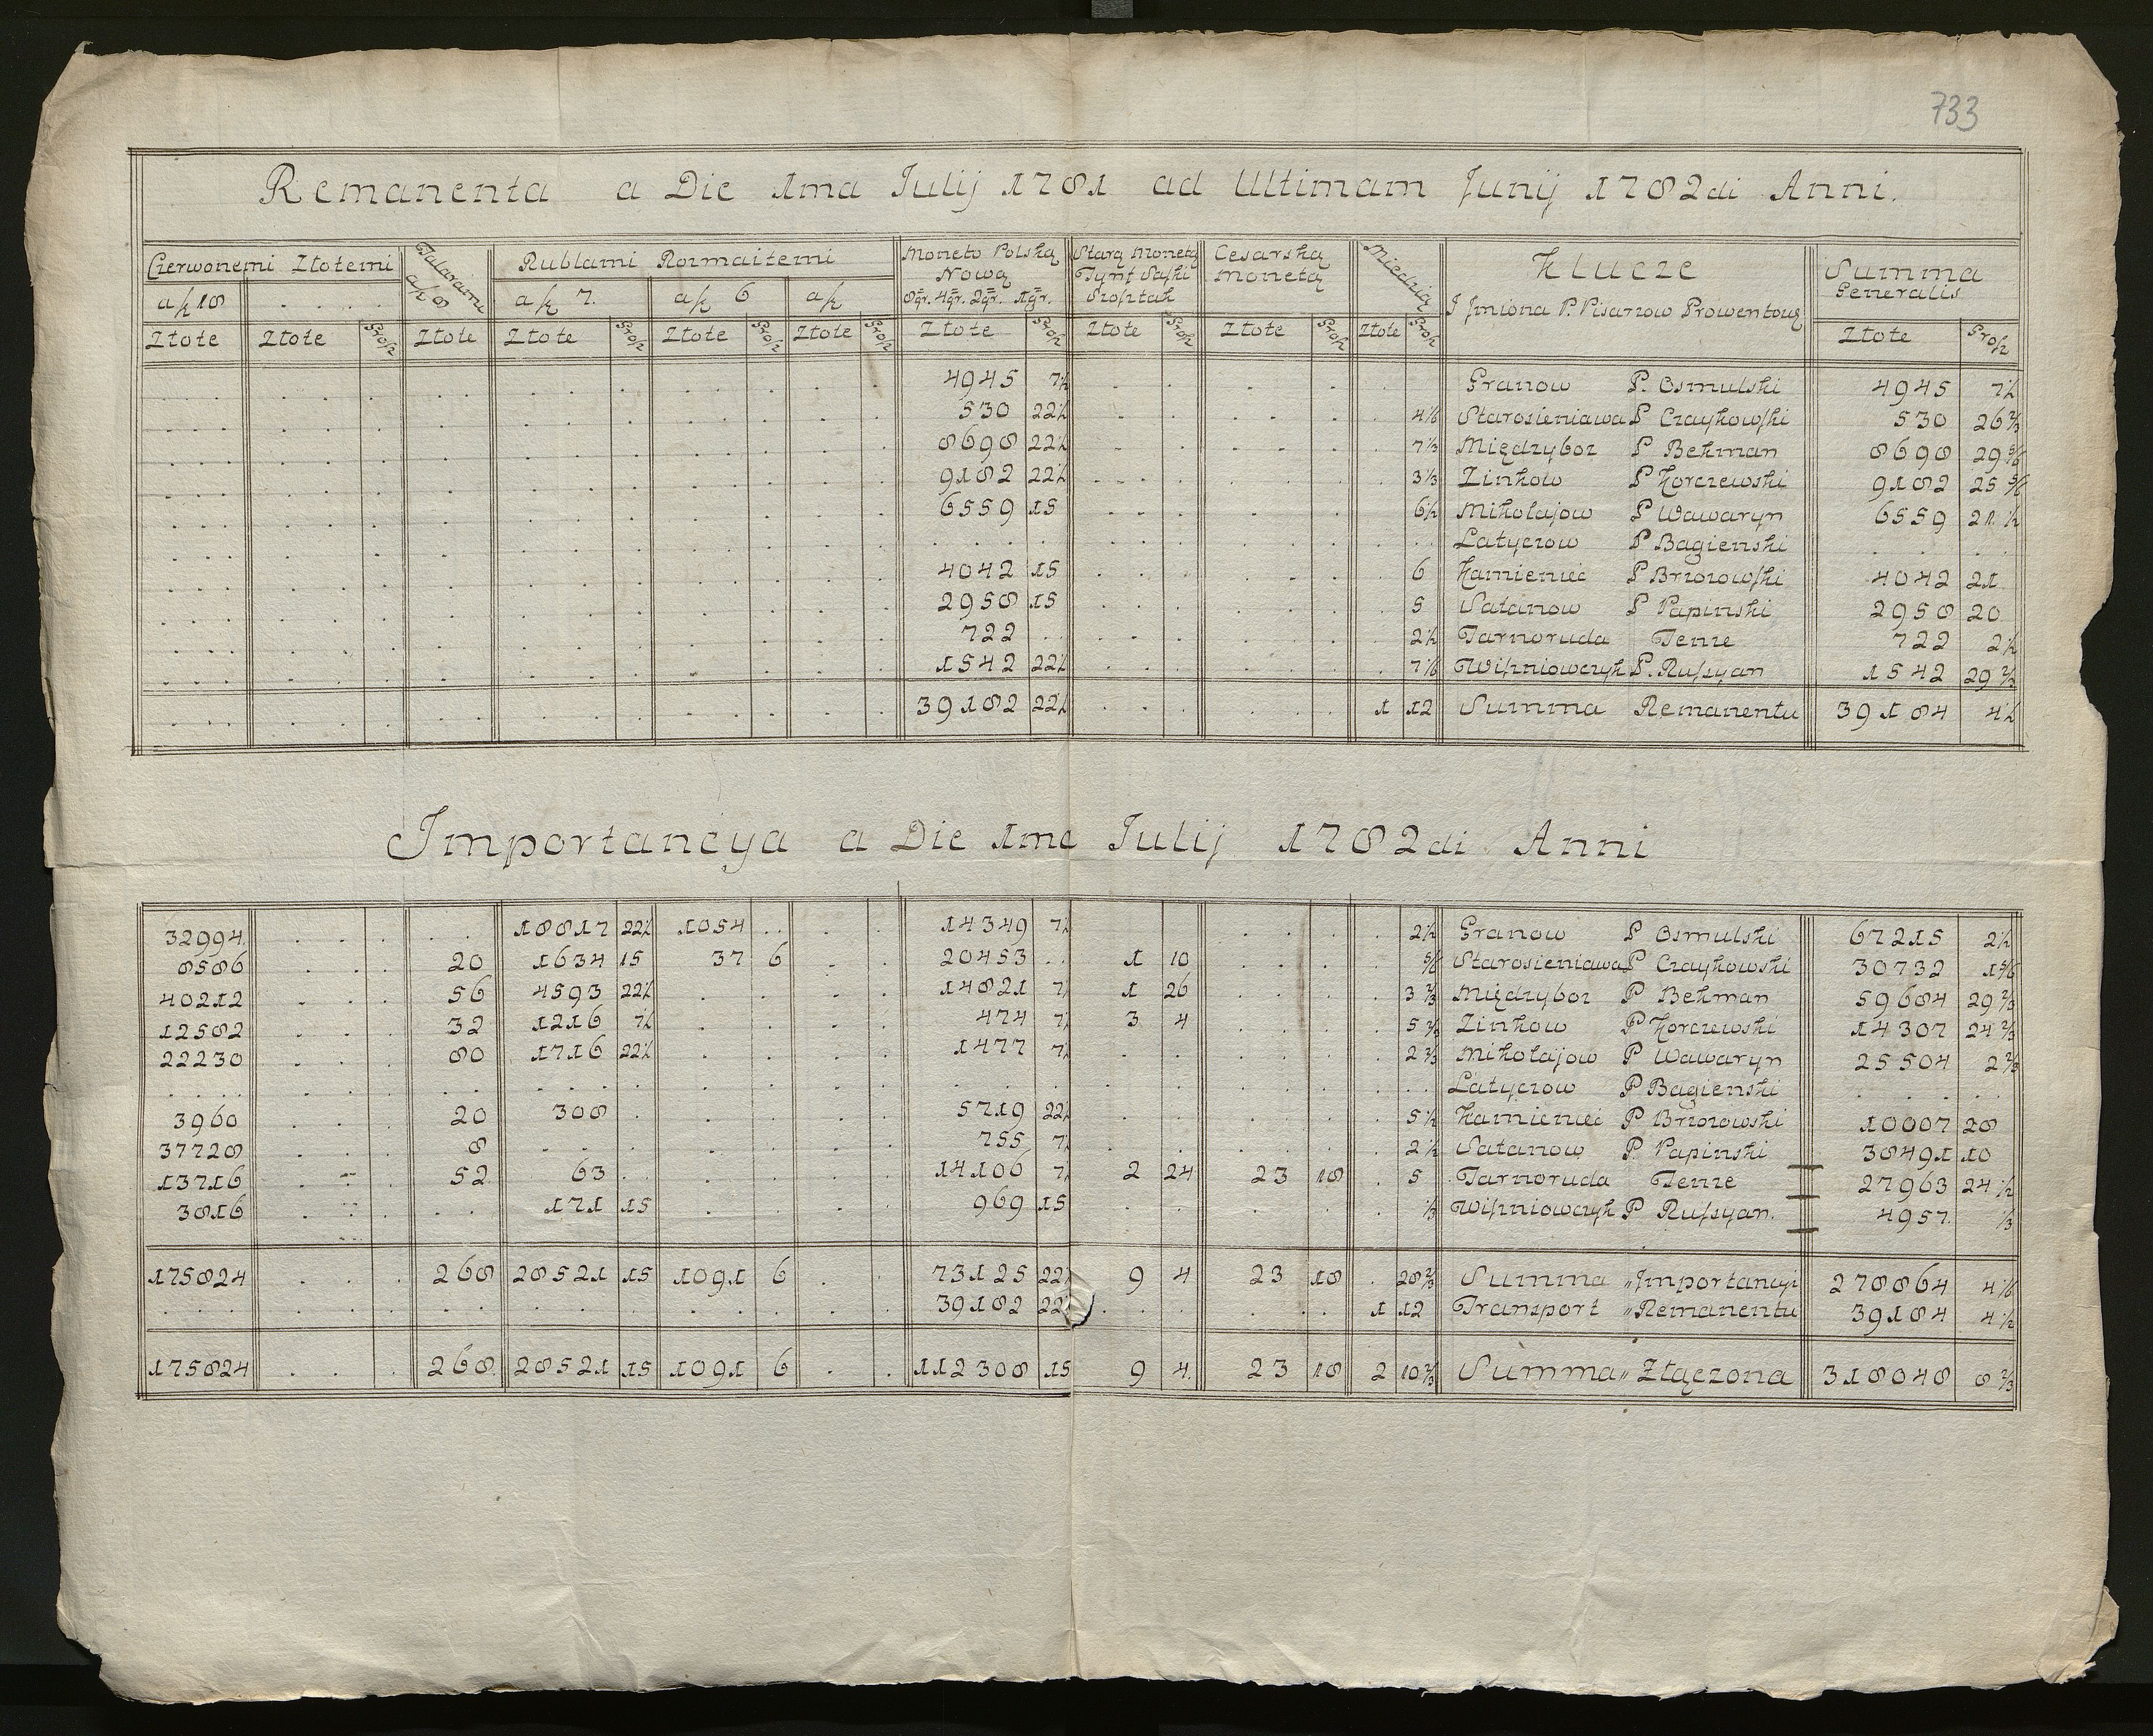 733
Remanenta a Die 1ma Iulij 1781 ad Ultimam Junij 1782di Anni.
Czerwonemi Złotemi Talarami a fl 8 Rublami Rozmaitemi Moneto Polską Stara Moneta Cesarska Miedzią Klucze Summa
Nową Tynf Saski Moneta Generalis
a fl 18 . . . . a fl 7. a fl 6 a fl 8gr. 4gr. 2gr. 1gr. Szostak I Jmiona P. Pisarzow Prowentowych
Złote Złote Grosz Złote Złote Grosz Złote Grosz Złote Grosz Złote Grosz Złote Grosz Złote Grosz Złote Grosz Złote Grosz
4945 7½ Granow P. Osmulski 4945 7½
530 22½ 4⅙ Starosieniawa P Czaykowski 530 26⅔
8698 22½ 7⅓ Międzyboz P Behman 8698 29⅚
9182 22½ 3⅓ Zinkow P Korczewski 9182 25⅚
6559 15 6½ Mikołajow P Wawaryn 6559 21½
Latyczow P Bagienski
4042 15 6 Kamieniec P Brzozowski 4042 21
2958 15 5 Satanow P Papinski 2958 20
722 2½ Tarnoruda Tenze 722 2½
1542 22½ 7⅙ Wiszniowczyk P. Russyan 1542 29⅔
39182 22½ 1 12 Summa Remanentu 39184 4½
Importancya a Die 1me Iulij 1782di Anni
32994 18817 22½ 1054 14349 7½ 2½ Granow P Osmulski 67215 2½
8586 20 1634 15 37 6 20453 1 10 ⅚ Starosieniawa P Czaykowski 30732 1⅚
40212 56 4593 22½ 14821 7½ 1 26 3⅔ Międzyboz P Behman 59684 29⅔
12582 32 1216 7½ 474 7½ 3 4 5⅔ Zinkow P Korczewski 14307 24⅔
22230 80 1716 22½ 1477 7½ 2⅔ Mikołajow P Wawaryn 25504 2⅔
Latyczow P Bagienski
3960 20 308 5719 22½ 5½ Kamieniec P Brzozowski 10007 28
37728 8 755 7½ 2½ Satanow P. Papinski 38491 10
13716 52 63 14106 7½ 2 24 23 18 5 Tarnoruda Tenze 27963 24½
3816 171 15 969 15 ⅓ Wiszniowczyk P Russyan. 4957 ⅓
175824 268 28521 15 1091 6 73125 22½ 9 4 23 18 28⅔ Summa „Importancyi 278864 4⅙
39182 22½ 1 12 Transport „Remanentu 39184 4½
175824 268 28521 15 1091 6 112308 15 9 4 23 18 2 10⅔ Summa „Złączona 318048 8⅔